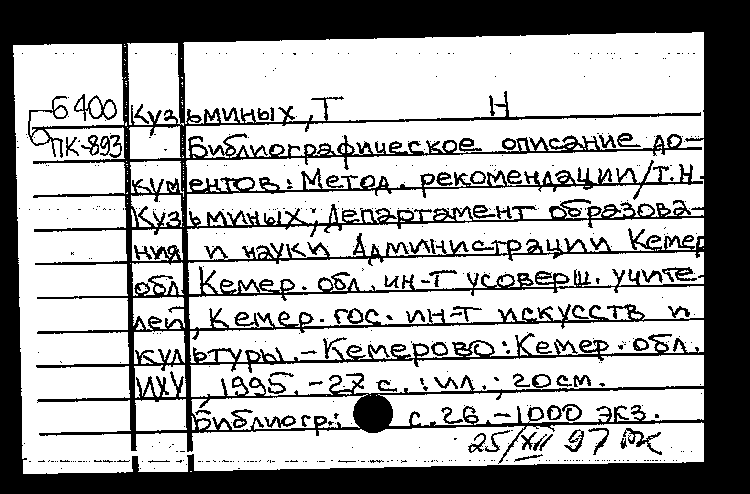 Б400 Кузьминых, Т Н
ПК-893 Библиографическое описание до-
кументов: Метод. рекомендации/Т.Н.
Кузьминых; Департамент образова-
ния и науки Администрации Кемер
обл. Кемер. обл. ин-т усоверш. учите-
лей, Кемер. гос. ин-т искусств и
культуры. - Кемерово: Кемер. обл.
ИУУ, 1995. - 27 с.: ил.; 20см.
Библиогр.: с. 26. - 1000 экз.
25/XII 97